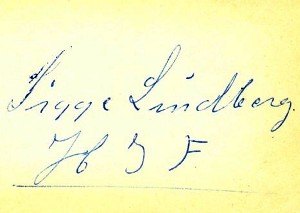 Sigge Lindberg.
H I F